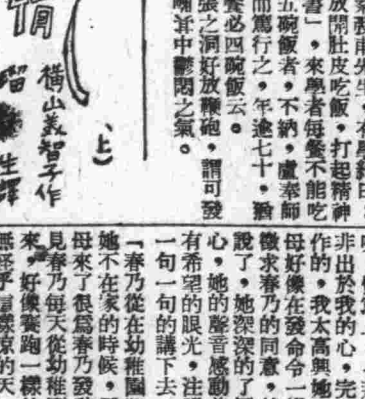 務甫先生，
放開肚皮吃飯，打起精神
書」，來學者每餐不能吃
五碗飯者，不納，盧奉師
而篤行之，年逾七十，猶
餐必四碗飯云。
張之洞好放鞭砲，謂可發
中鬱悶之氣。
（上）
橫山美智子作
生譯
非出於我的心，完
作的，我太高興她
母好像在發命令一
徵求春乃的同意，
說了，她深深的了
心，她的聲音感動
有希望的眼光，注
一句一句的講下去
「春乃從在幼稚園
她不在家的時候，
母來了很爲春乃發
見春乃每天從幼稚園
來，好像賽跑一樣
無怪乎這樣涼的天